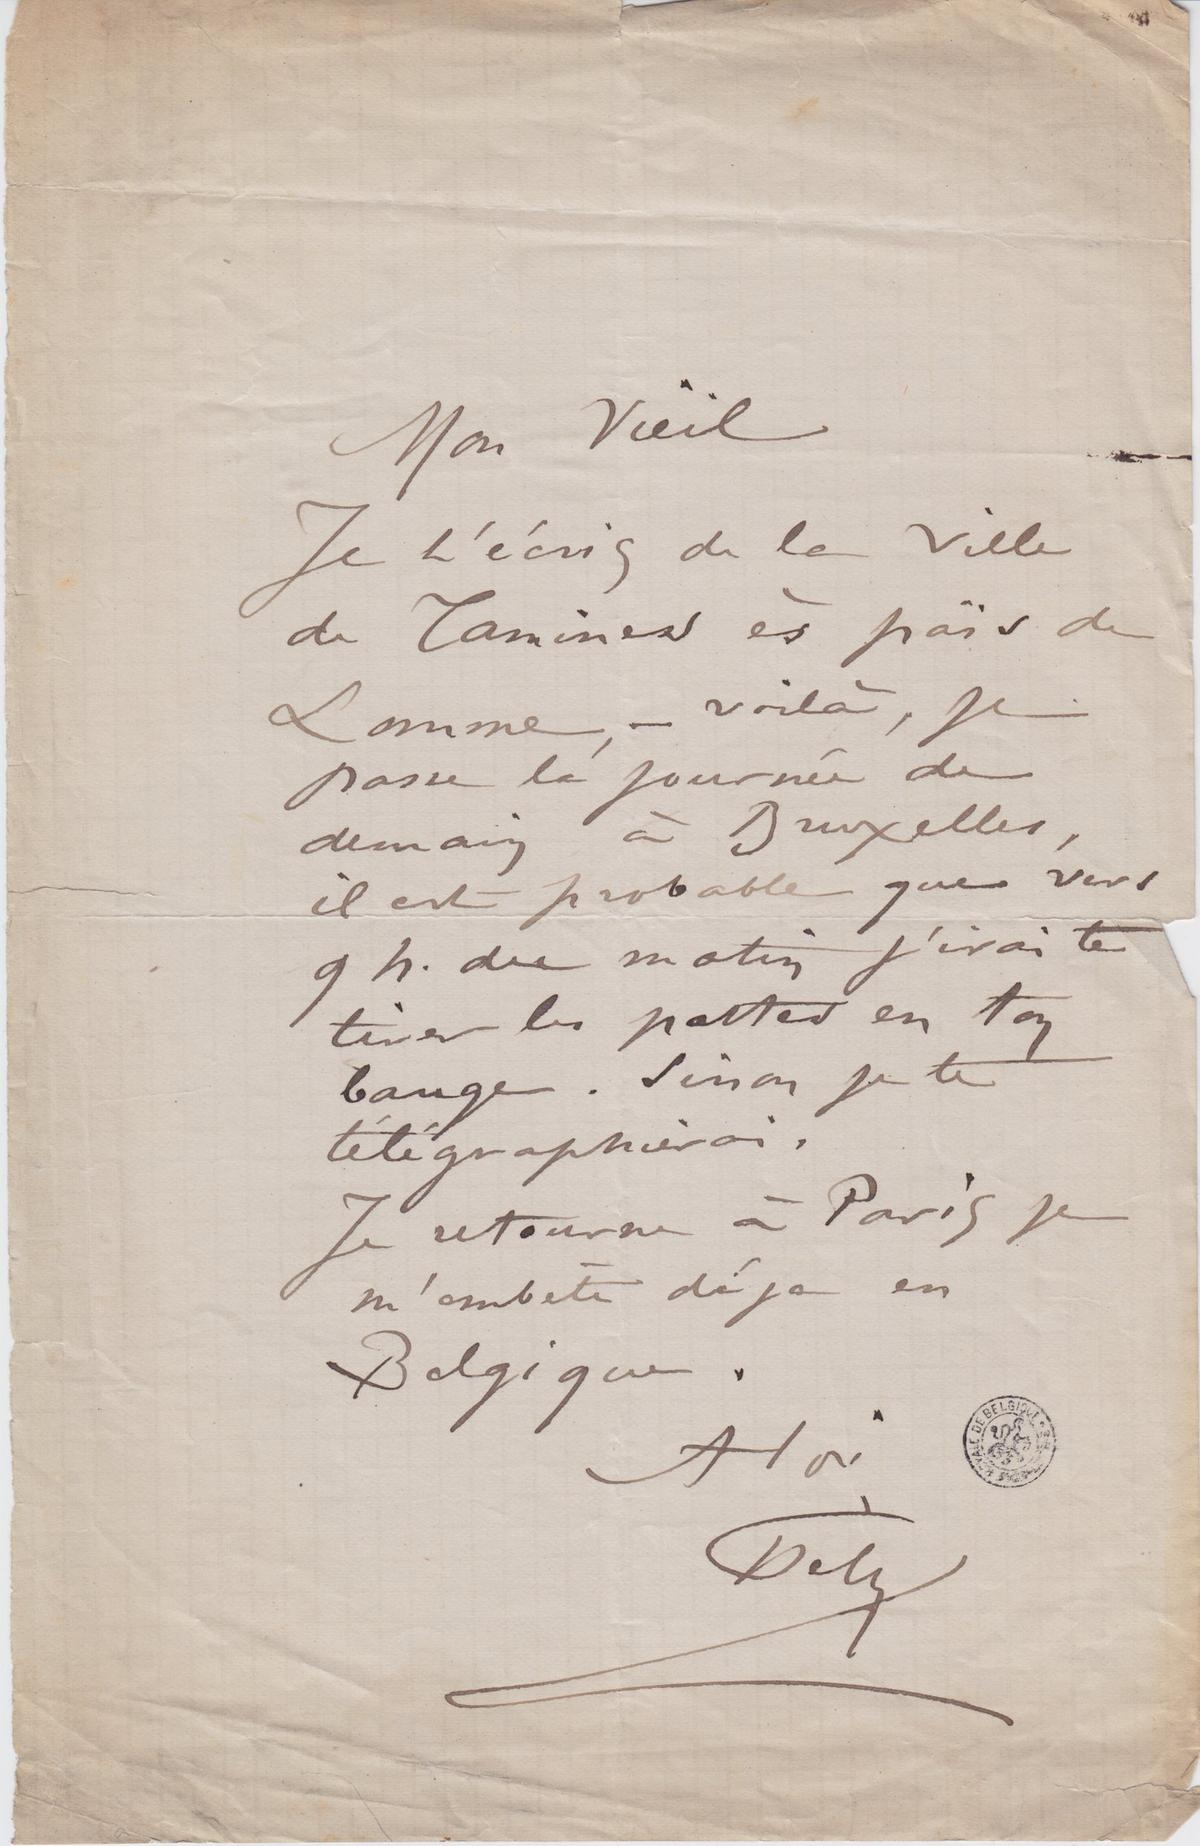 Mon Vieil
Je t'écris de la Ville
de Tamines ès païs de
Lomme, – voilà, je
passe la journée de
demain à Bruxelles,
il est probable que vers
9 h. du matin j'irai te
tirer les pattes en ton
bauge. Sinon je te
télégraphierai.
Je retourne à Paris je
m'embête déja en
Belgique.
A toi
Fély
ROYALE DE BELGIQUE